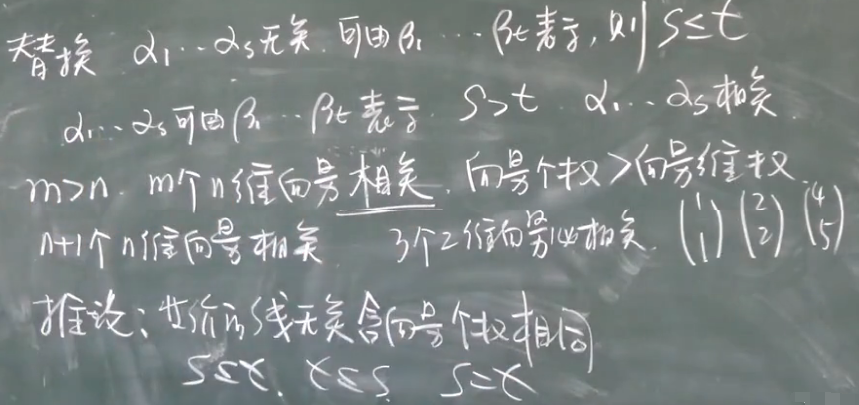 替换 α₁…αs无关.可由β₁…βt表示,则s≤t
α₁…αs可由β₁…βt表示 s>t α₁…αs相关
m>n. m个n维向量相关.向量个数>向量维数
n+1个n维向量相关 3个2维向量必相关. (1 1) (2 2) (4 5)
推论:等价的线无关含向量个数相同
s≤t. t≤s. s=t